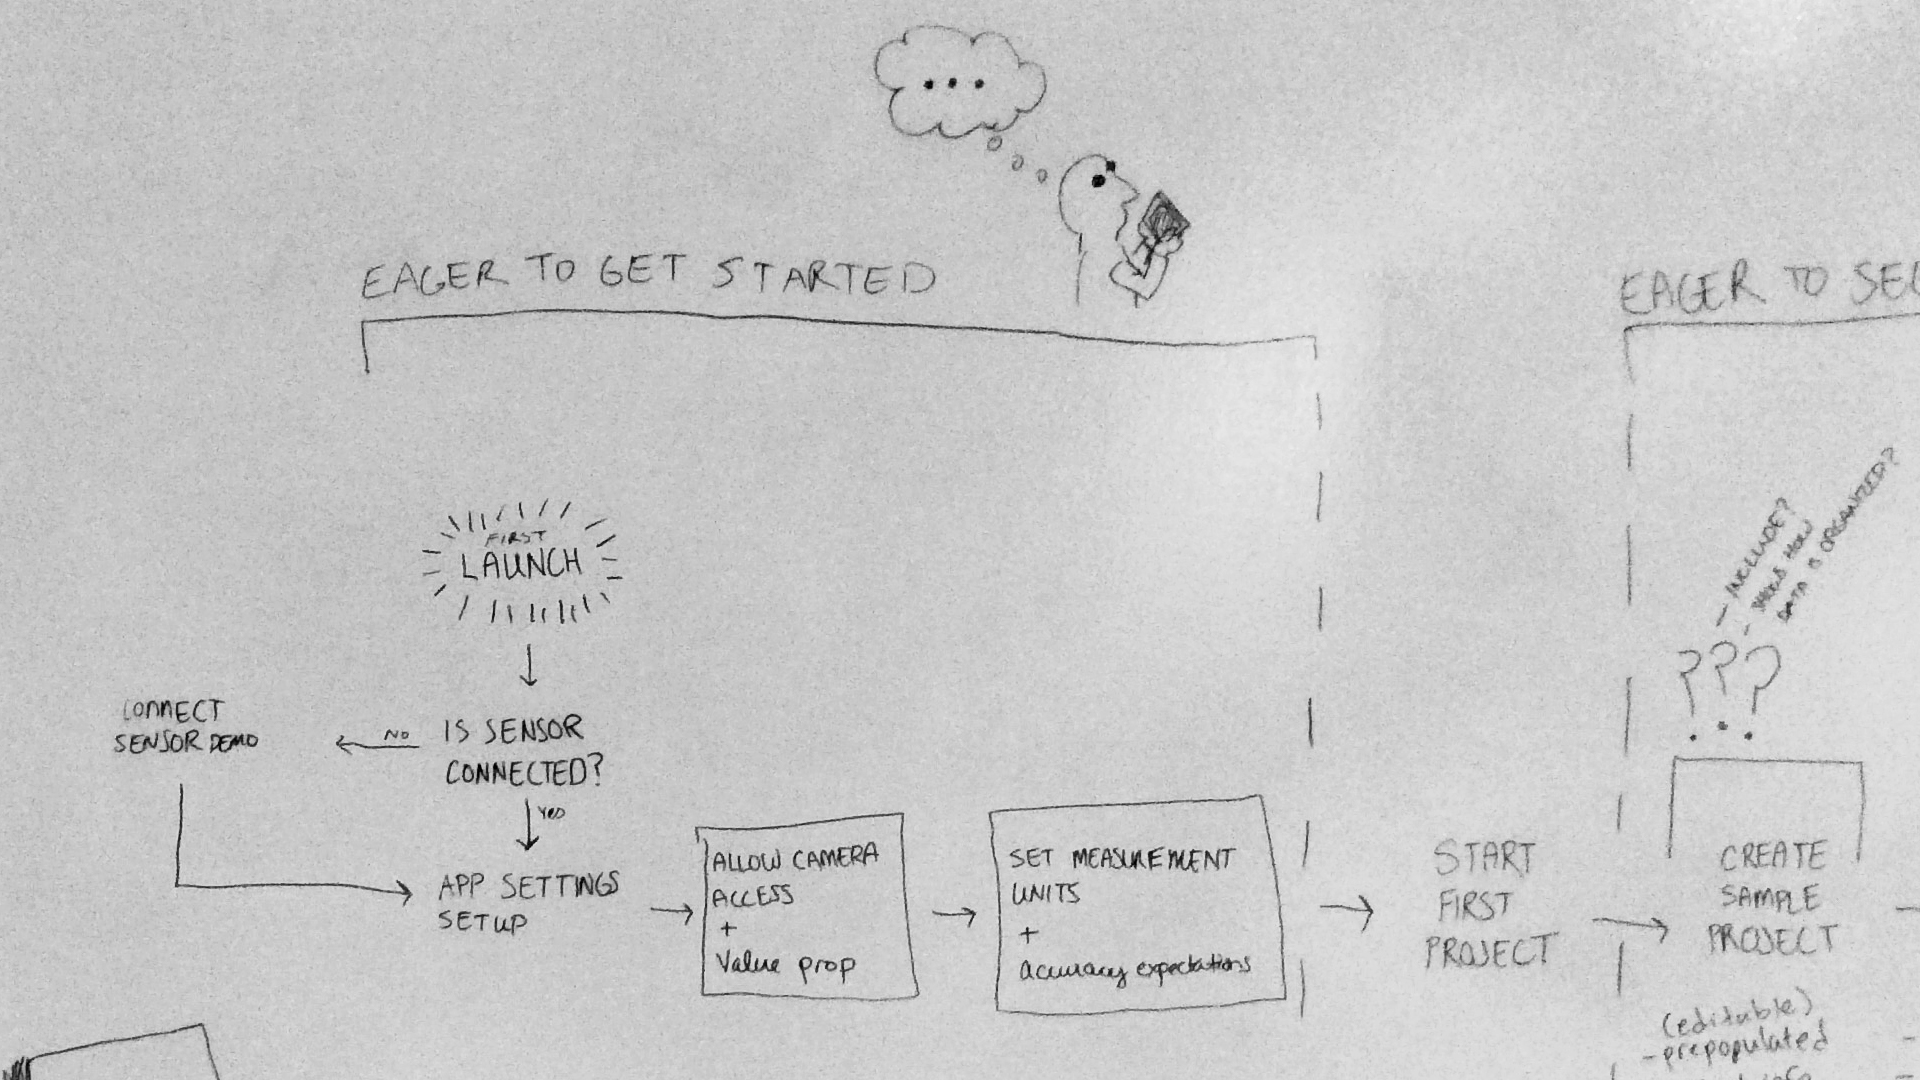 ...
EAGER TO GET STARTED
EAGER TO
FIRST
LAUNCH
CONNECT
SENSOR DEMO
NO
IS SENSOR
CONNECTED?
Yes
APP SETTINGS
SETUP
ALLOW CAMERA
ACCESS
+
Value prop
SET MEASUREMENT
UNITS
+
accuracy expectations
START
FIRST
PROJECT
- INCLUDE?
HOW
DATA IS ORGANIZED?
???
CREATE
SAMPLE
PROJECT
(editable)
- prepopulated